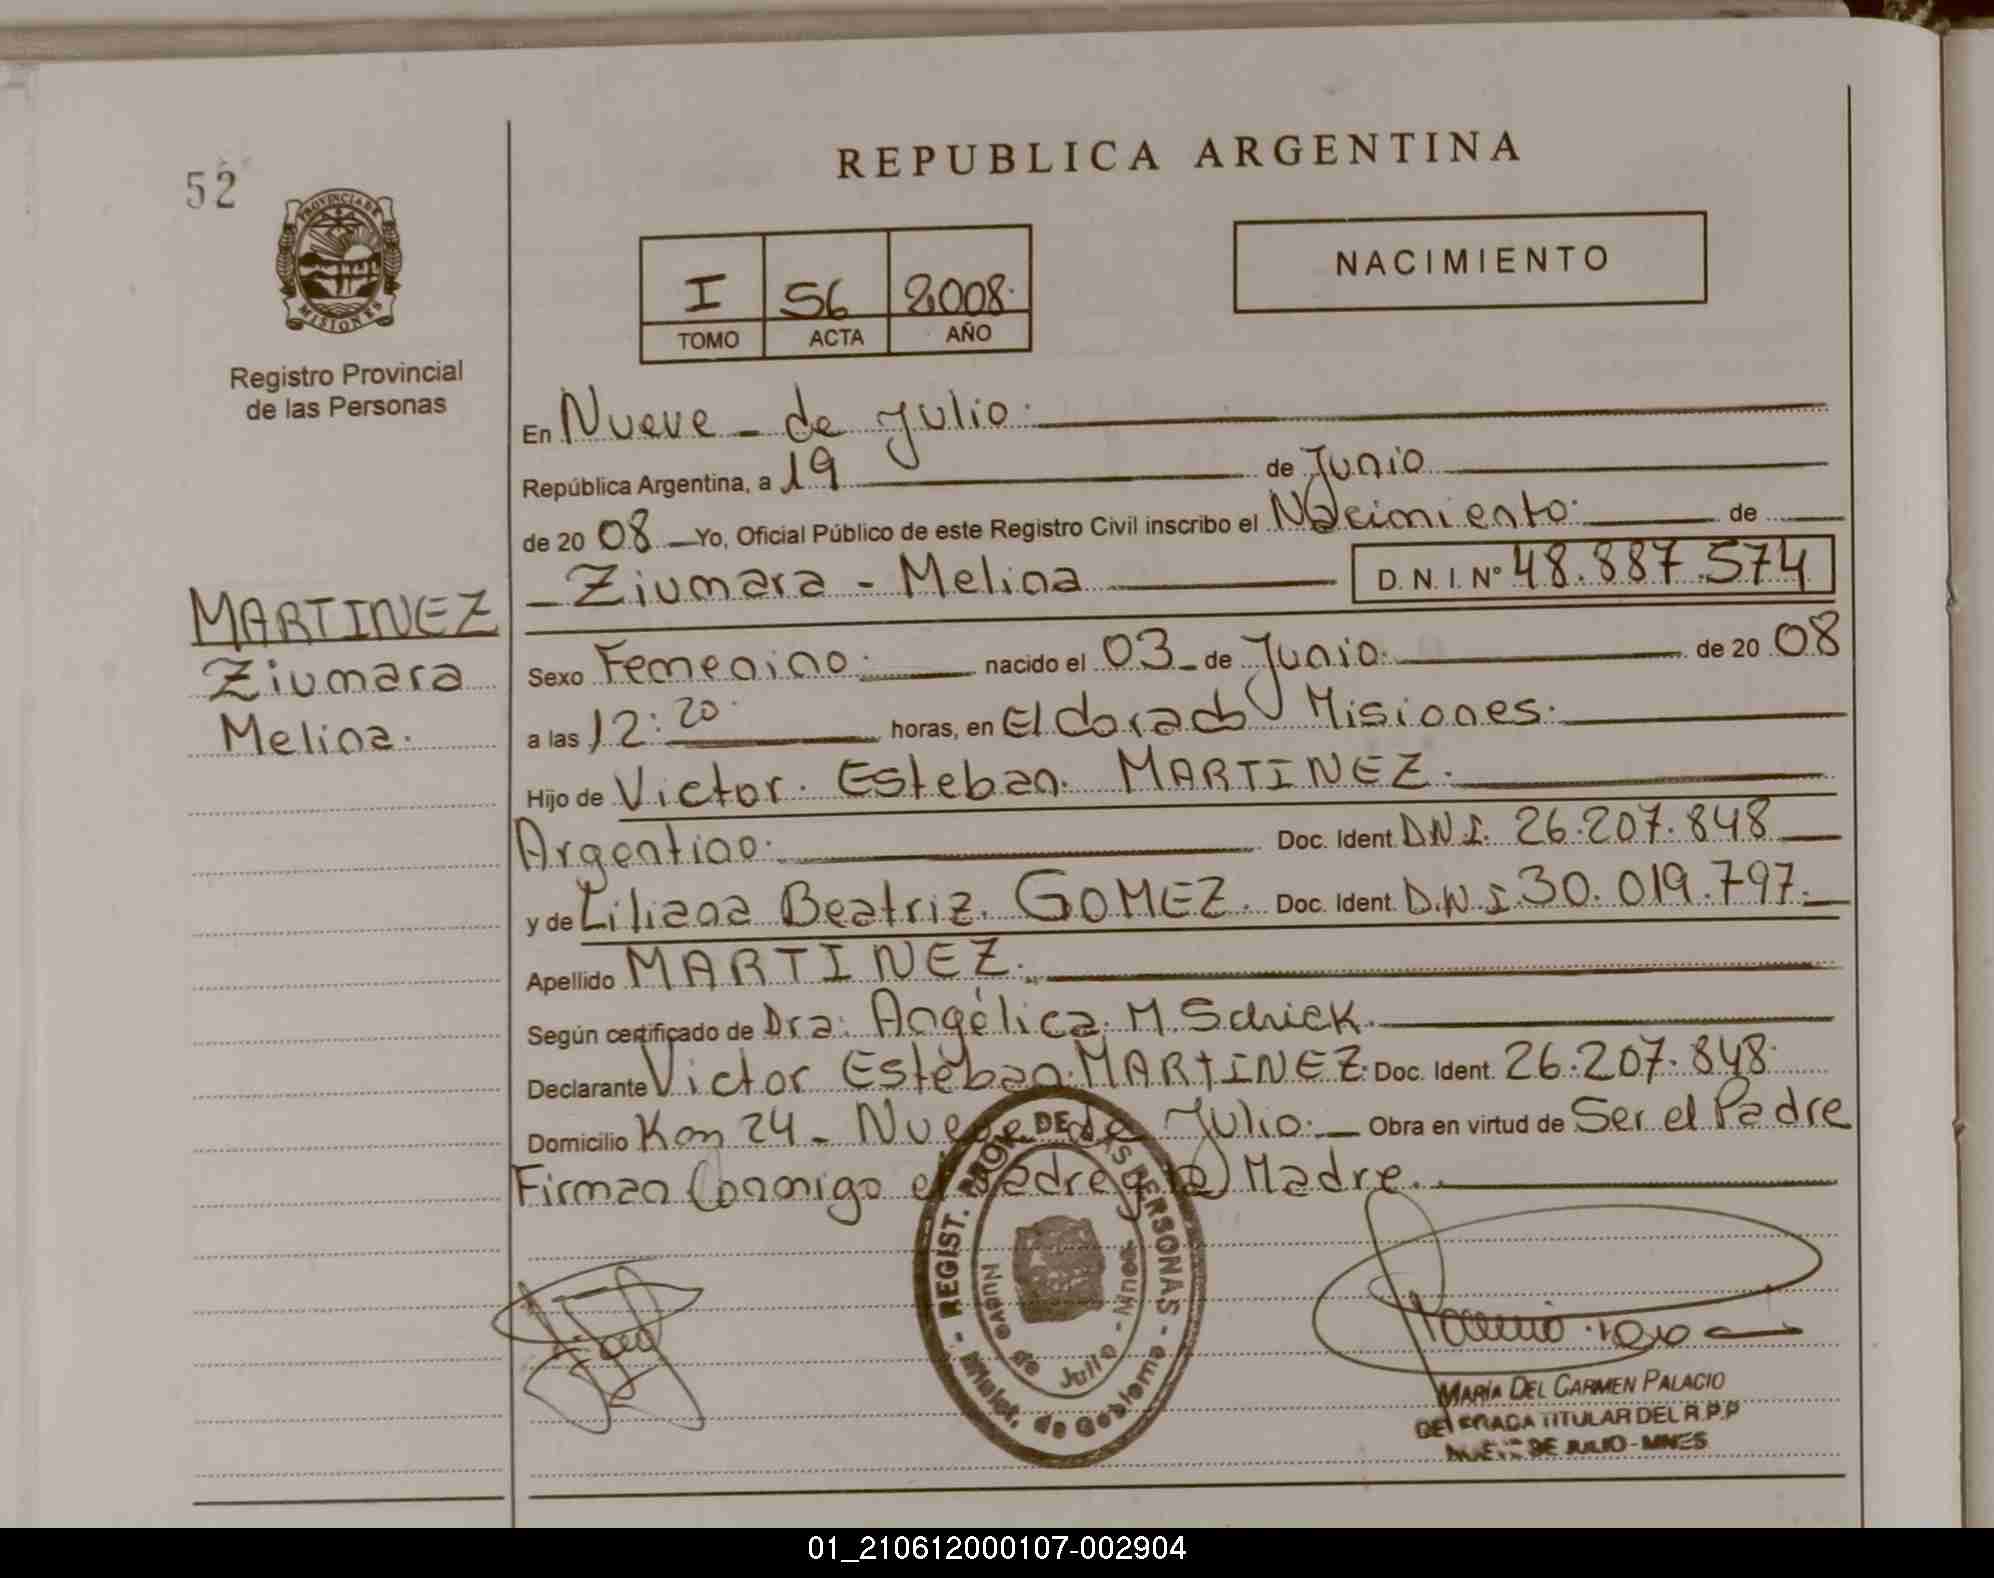 REPUBLICA ARGENTINA
52
PROVINCIA DE
MISIONES
NACIMIENTO
I 56 2008.
TOMO ACTA AÑO
Registro Provincial
de las Personas
En Nueve - de Julio.
República Argentina, a 19 de Junio
de 20 08 Yo, Oficial Público de este Registro Civil inscribo el Nacimiento. de
Ziumara - Melina D.N.I. Nº 48.887.574
MARTINEZ
Ziumara
Melina.
Sexo Femenino. nacido el 03 de Junio. de 20 08
a las 12:20. horas, en Eldorado Misiones.
Hijo de Victor. Esteban. MARTINEZ.
Argentino. Doc. Ident. D.N.I. 26.207.848
y de Liliana Beatriz. GOMEZ. Doc. Ident. D.N.I. 30.019.797.
Apellido MARTINEZ.
Según certificado de Dra: Angélica. M. Schick.
Declarante Victor Esteban. MARTINEZ. Doc. Ident. 26.207.848.
Domicilio Km 24 - Nueve de Julio. Obra en virtud de Ser el Padre
Firman Conmigo el Padre y la Madre.
- REGIST. PROV. DE LAS PERSONAS -
Minist. de Gobierno
Nueve de Julio - Mnes.
MARÍA DEL CARMEN PALACIO
DELEGADA TITULAR DEL R.P.P
NUEVE DE JULIO - MNES
01_210612000107-002904